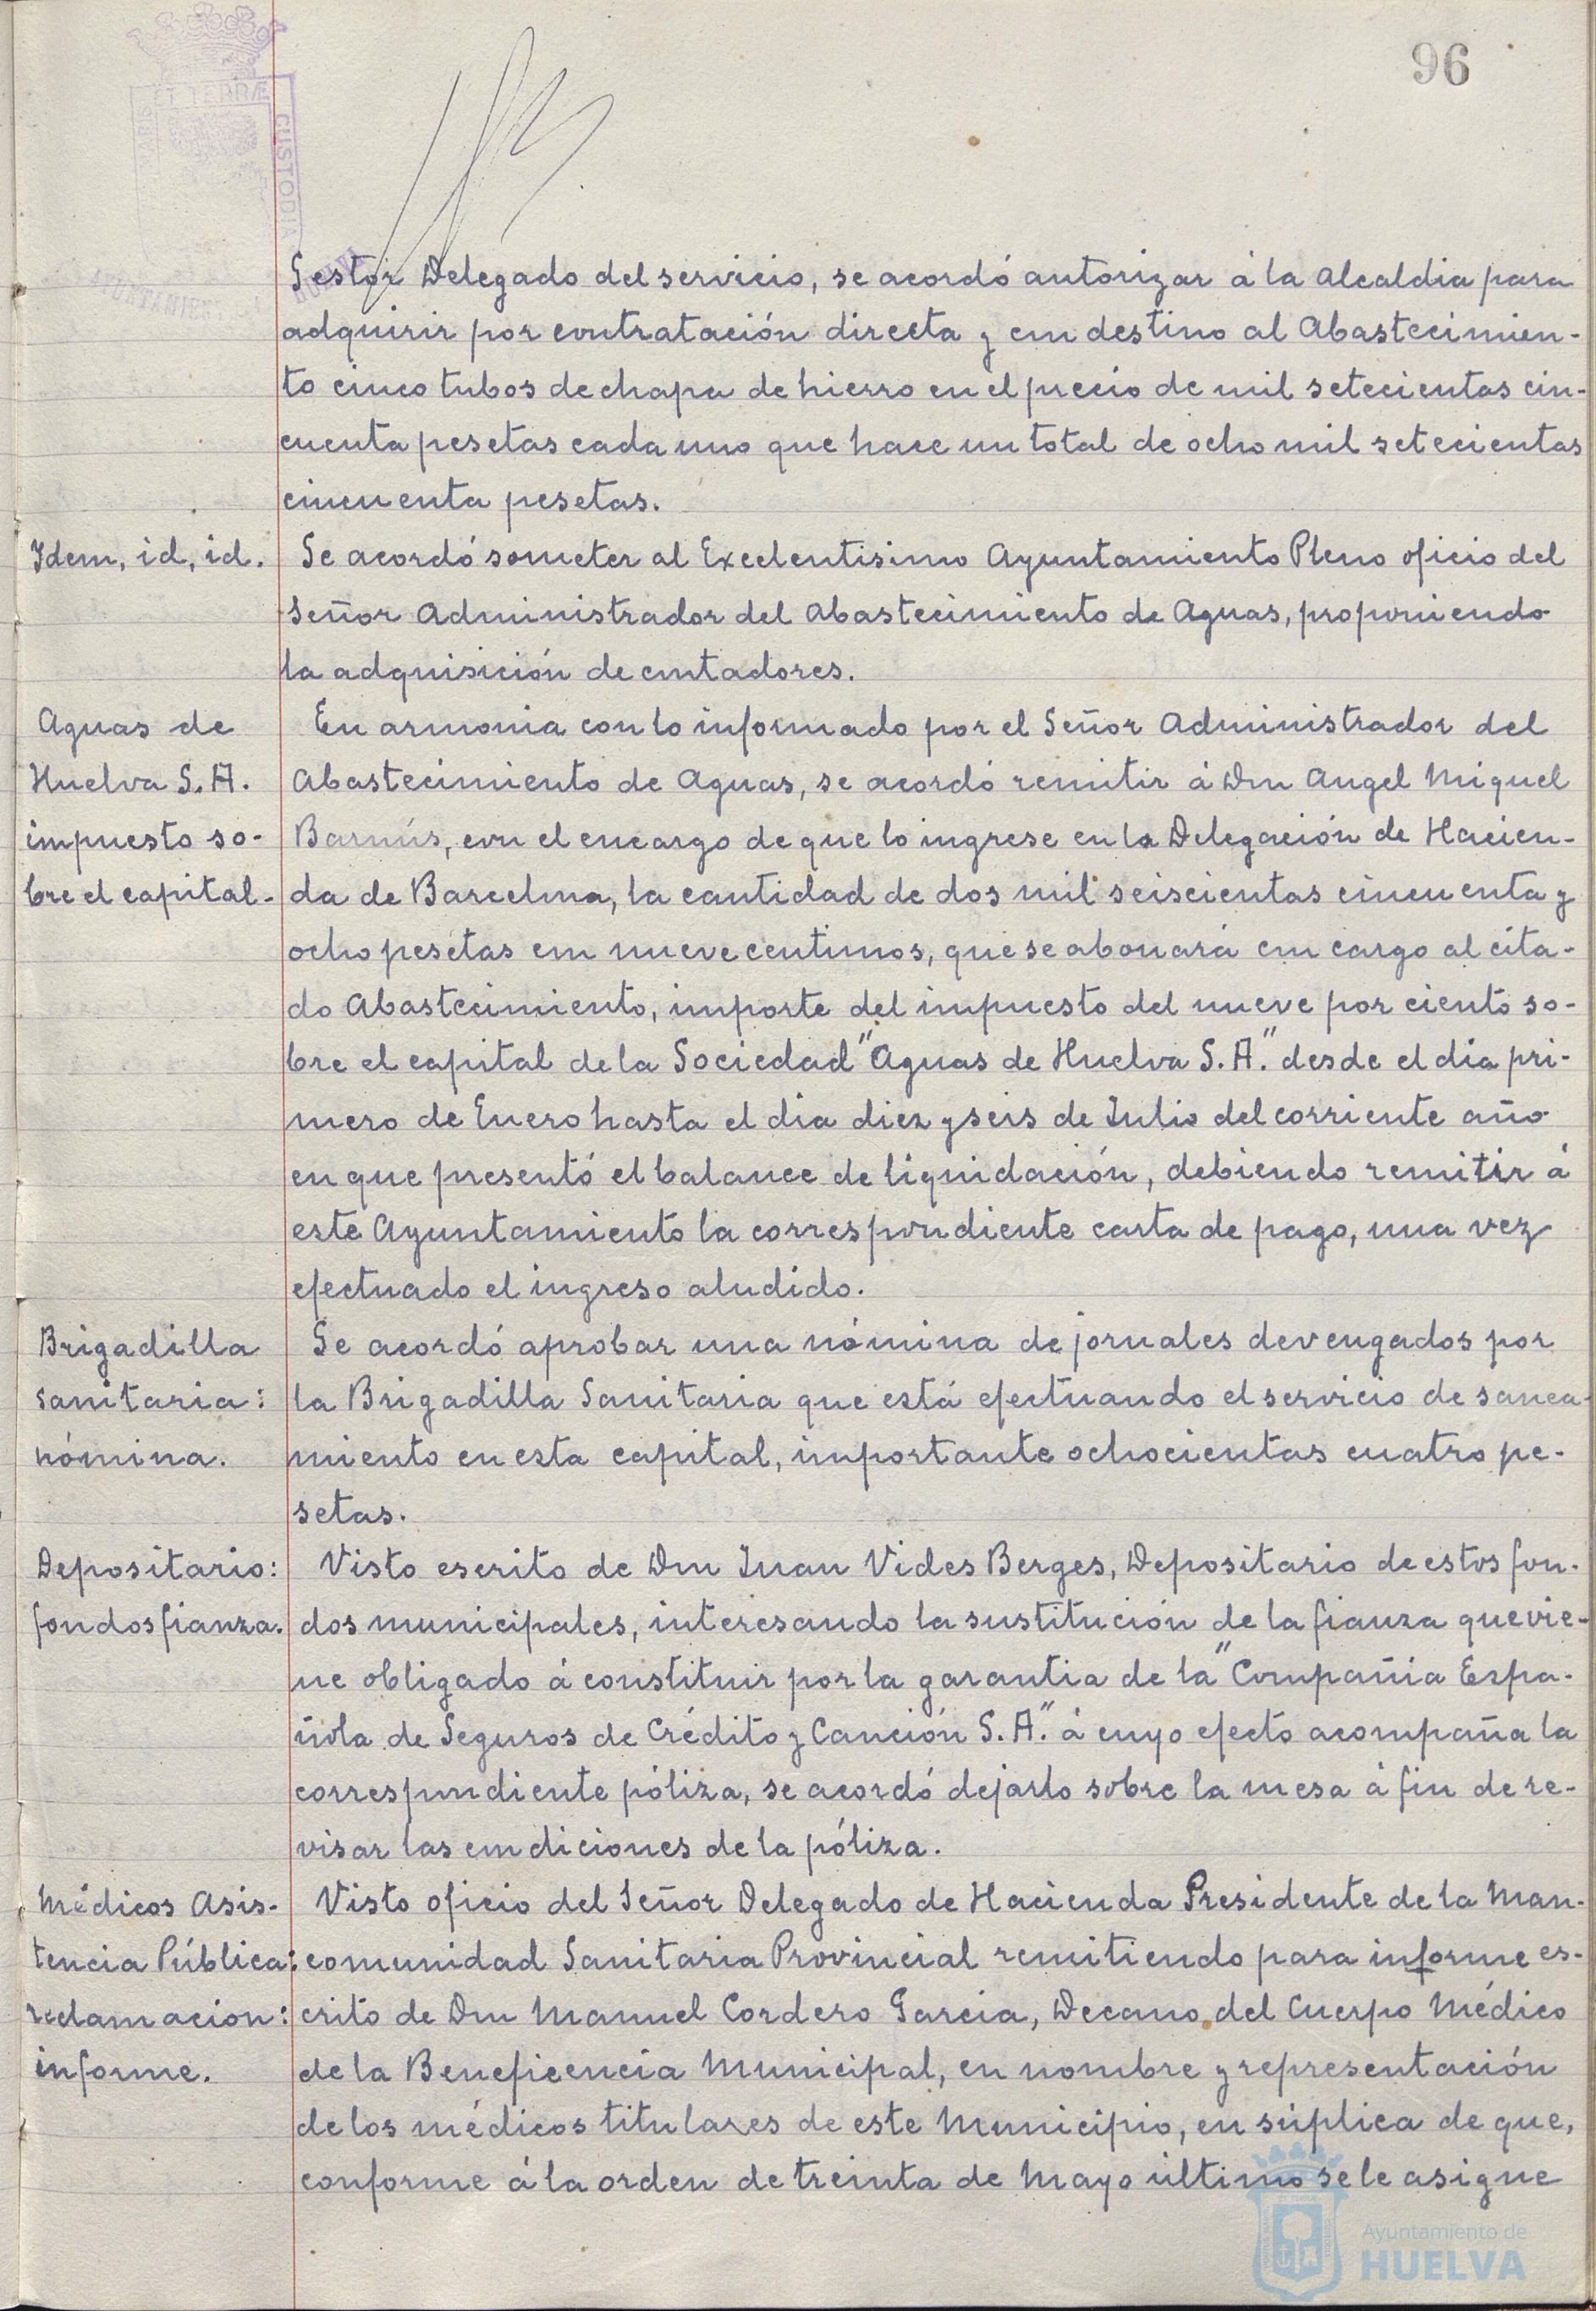 96
ET TERRÆ
CUSTODIA
Gestor Delegado del servicio, se acordó autorizar á la Alcaldia para
adquirir por contratación directa y con destino al Abastecimien-
to cinco tubos de chapa de hierro en el precio de mil setecientas cin-
cuenta pesetas cada uno que hace un total de ocho mil setecientas
cincuenta pesetas.
Idem, id, id.
Se acordó someter al Excelentisimo Ayuntamiento Pleno oficio del
Señor Administrador del Abastecimiento de Aguas, proponiendo
la adquisición de contadores.
Aguas de
Huelva S.A.
impuesto so-
bre el capital-
En armonia con lo informado por el Señor Administrador del
Abastecimiento de Aguas, se acordó remitir á Don Angel Miquel
Barnús, con el encargo de que lo ingrese en la Delegación de Hacien-
da de Barcelona, la cantidad de dos mil seiscientas cincuenta y
ocho pesetas con nueve centimos, que se abonará con cargo al cita-
do Abastecimiento, importe del impuesto del nueve por ciento so-
bre el capital de la Sociedad "Aguas de Huelva S.A." desde el dia pri-
mero de Enero hasta el dia diez y seis de Julio del corriente año
en que presentó el balance de liquidación, debiendo remitir á
este Ayuntamiento la correspondiente carta de pago, una vez
efectuado el ingreso aludido.
Brigadilla
sanitaria:
nómina.
Se acordó aprobar una nómina de jornales devengados por
la Brigadilla Sanitaria que está efectuando el servicio de sanea-
miento en esta capital, importante ochocientas cuatro pe-
setas.
Depositario:
fondos fianza.
Visto escrito de Don Juan Vides Berges, Depositario de estos fon-
dos municipales, interesando la sustitución de la fianza que vie-
ne obligado á constituir por la garantia de la "Compañia Espa-
ñola de Seguros de Crédito y Caución S.A." á cuyo efecto acompaña la
correspondiente póliza, se acordó dejarlo sobre la mesa á fin de re-
visar las condiciones de la póliza.
Médicos Asis-
tencia Pública:
reclamación:
informe.
Visto oficio del Señor Delegado de Hacienda Presidente de la Man-
comunidad Sanitaria Provincial remitiendo para informe es-
crito de Don Manuel Cordero Garcia, Decano del Cuerpo Médico
de la Beneficencia Municipal, en nombre y representación
de los médicos titulares de este Municipio, en súplica de que,
conforme á la orden de treinta de Mayo último se le asigne
Ayuntamiento de
HUELVA